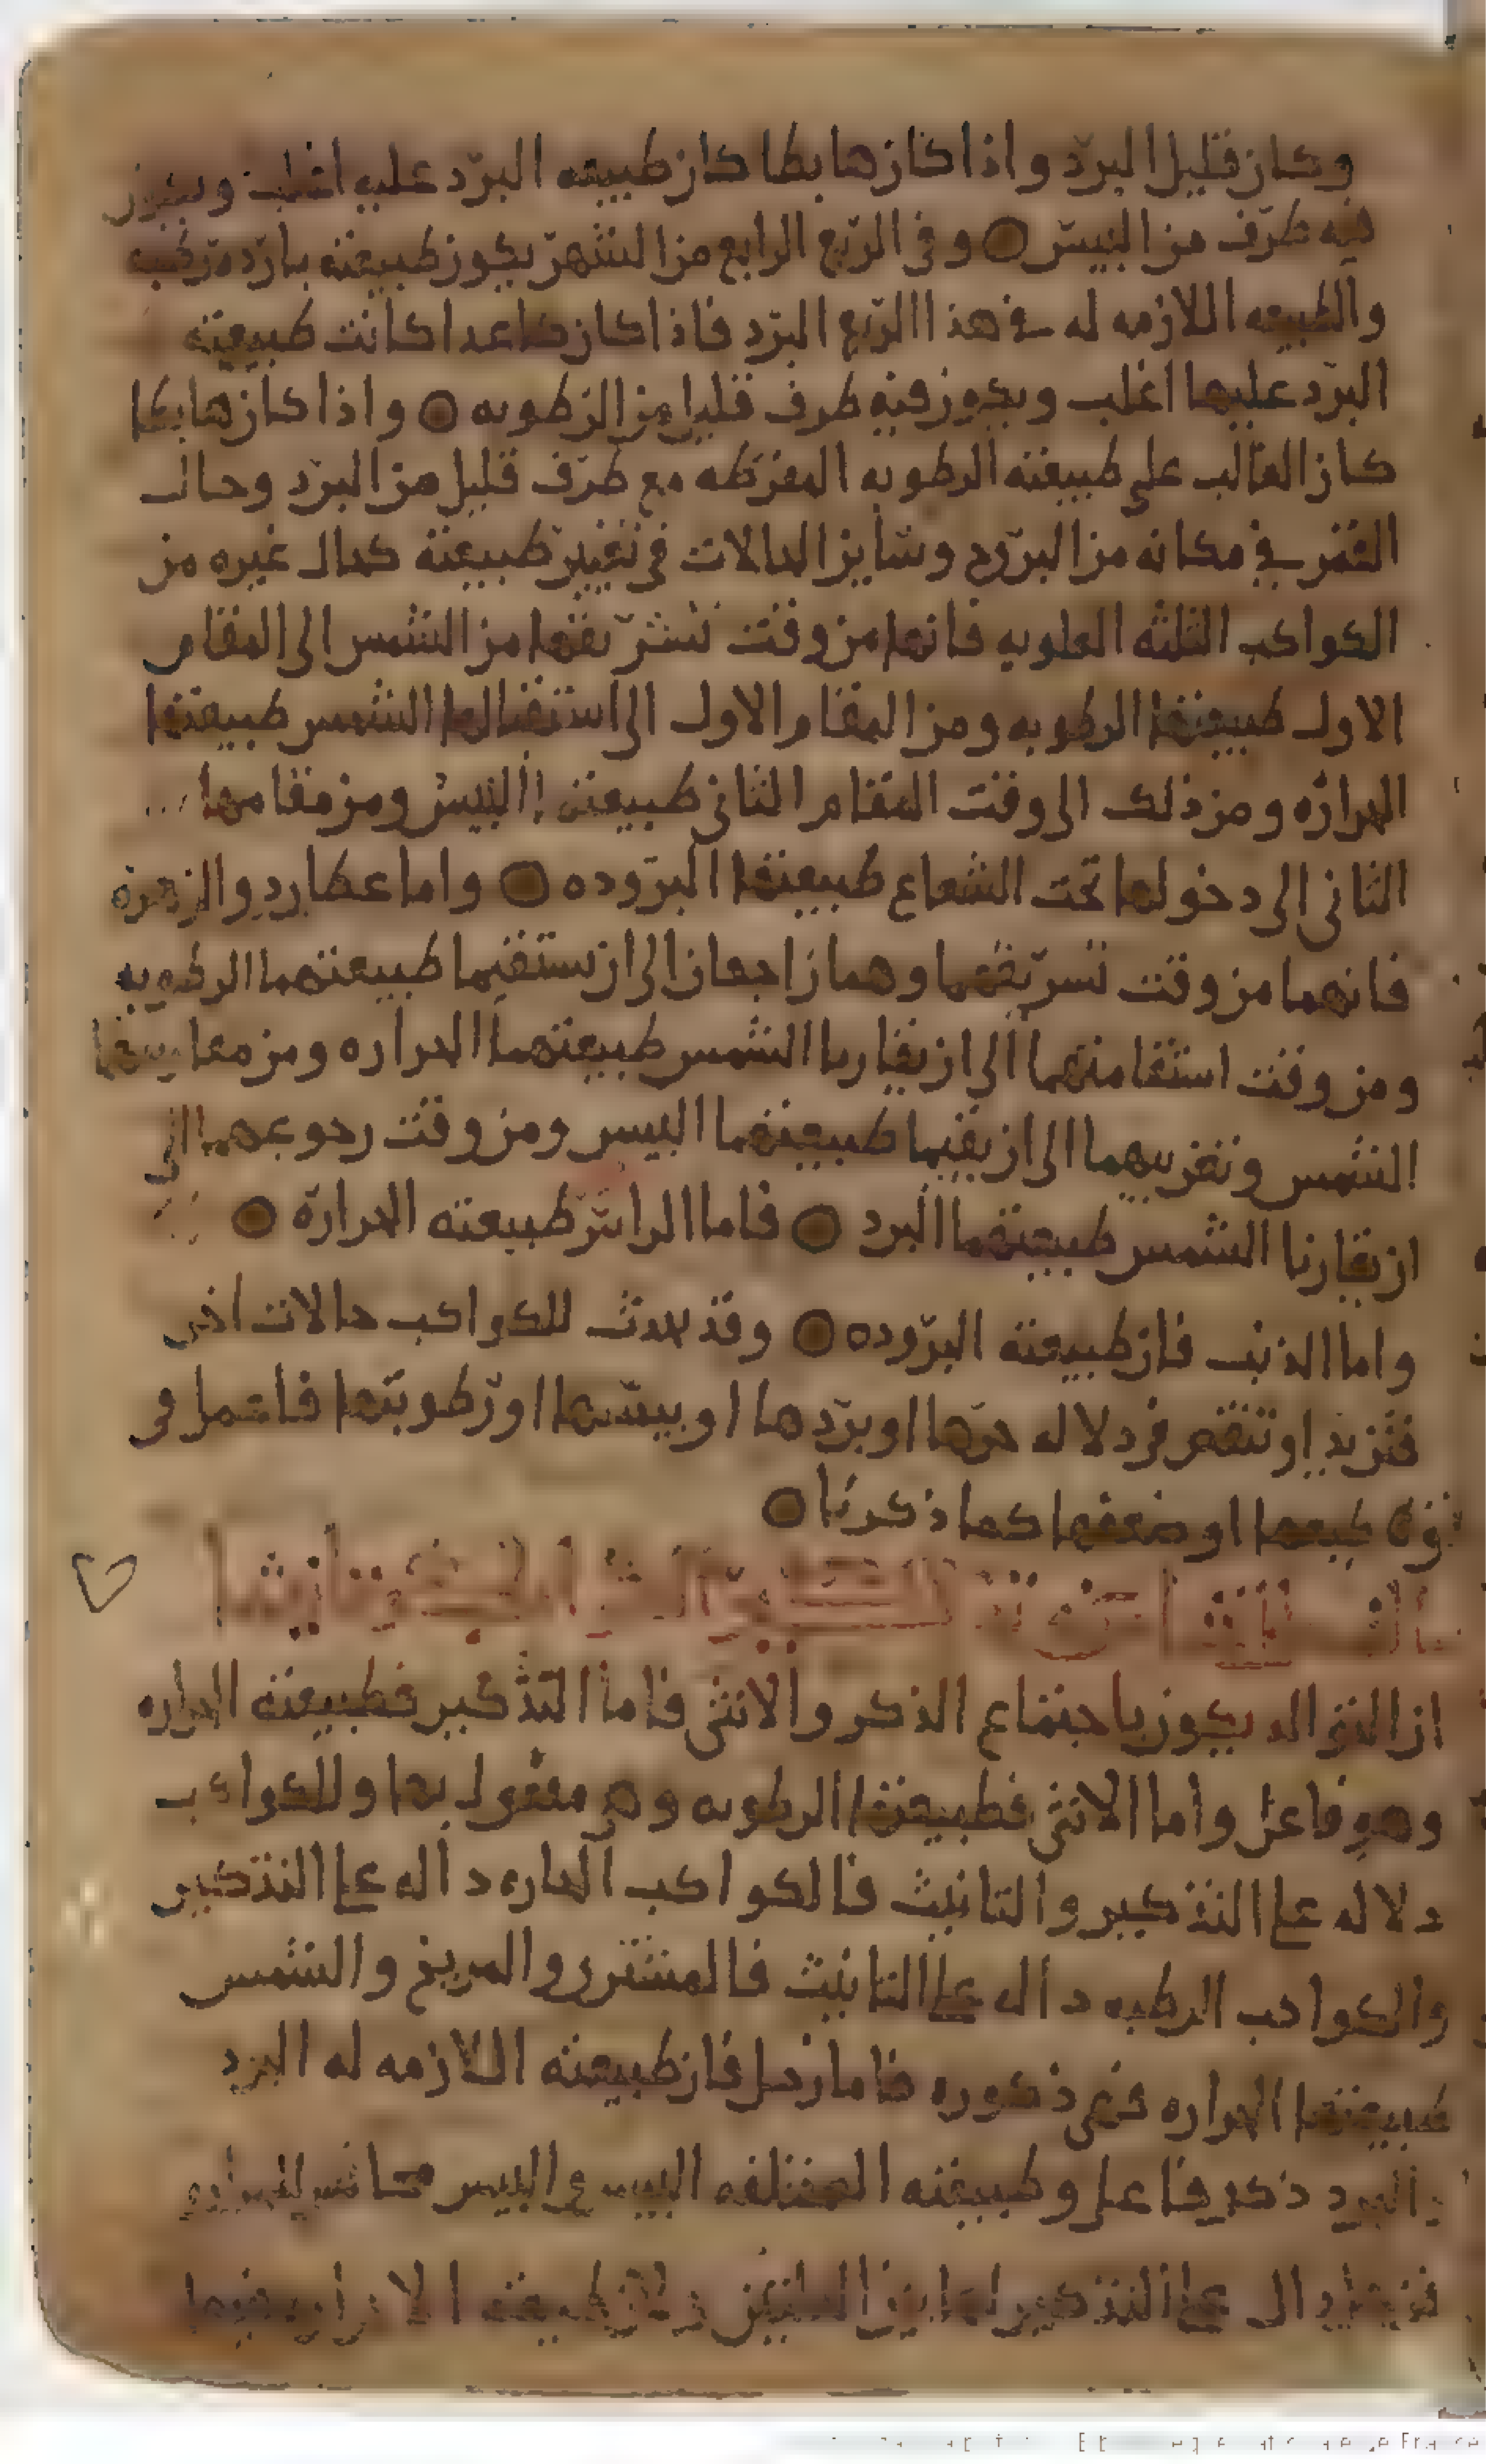 وكان قليل البرد واذا كان هابطا كان طبيعه البرد عليه اغلب ويكون
فيه طرف من اليبس ○ وفى الربع الرابع من الشهر يكون طبيعته بارده رطبه
والطبيعه اللازمه له فى هذا الربع البرد فاذا كان صاعدا كانت طبيعته
البرد عليها اغلب ويكون فيه طرف قليل من الرطوبه ○ واذا كان هابطا
كان الغالب على طبيعته الرطوبه المفرطه مع طرف قليل من البرد وحال
القمر فى مكانه من البروج وساير الحالات فى تغيير طبيعته كحال غيره من
الكواكب الثلثه العلويه فانها من وقت تشريقها من الشمس الى المقام
الاول طبيعتها الرطوبه ومن المقام الاول الى استقبالها الشمس طبيعتها
الحراره ومن ذلك الى وقت المقام الثانى طبيعتها اليبس ومن مقامها
الثانى الى دخولها تحت الشعاع طبيعتها البروده ○ واما عطارد والزهرة
فانهما من وقت تشريقهما وهما راجعان الى ان يستقيما طبيعتهما الرطوبه
ومن وقت استقامتهما الى ان يقاربا الشمس طبيعتهما الحراره ومن
الشمس وتغريبهما الى ان يقيما طبيعتهما اليبس ومن وقت رجوعهما الى
ان يقارنا الشمس طبيعتهما البرد ○ فاما الراس طبيعته الحرارة ○
واما الذنب فان طبيعته البروده ○ وقد يحدث للكواكب حالات اخرى
فتزيد او تنقص فى دلاله حرها او بردها او يبسها او رطوبتها فاعمل فى
قوة طبيعها او ضعفها كما ذكرنا ○
فى تذكير الكواكب وتانيثها
ان التوالد يكون باجتماع الذكر والانثى فاما التذكير فطبيعته الحراره
وهو فاعل واما الانثى فطبيعتها الرطوبه وهى مفعول بها وللكواكب
دلاله على التذكير والتانيث فالكواكب الحاره داله على التذكير
والكواكب الرطبه داله على التانيث فالمشترى والمريخ والشمس
طبيعتها الحراره فهى ذكوره فاما زحل فان طبيعته اللازمه له البرد
والبرد ذكر فاعل وطبيعته المختلفه اليبس واليبس
دال على التذكير